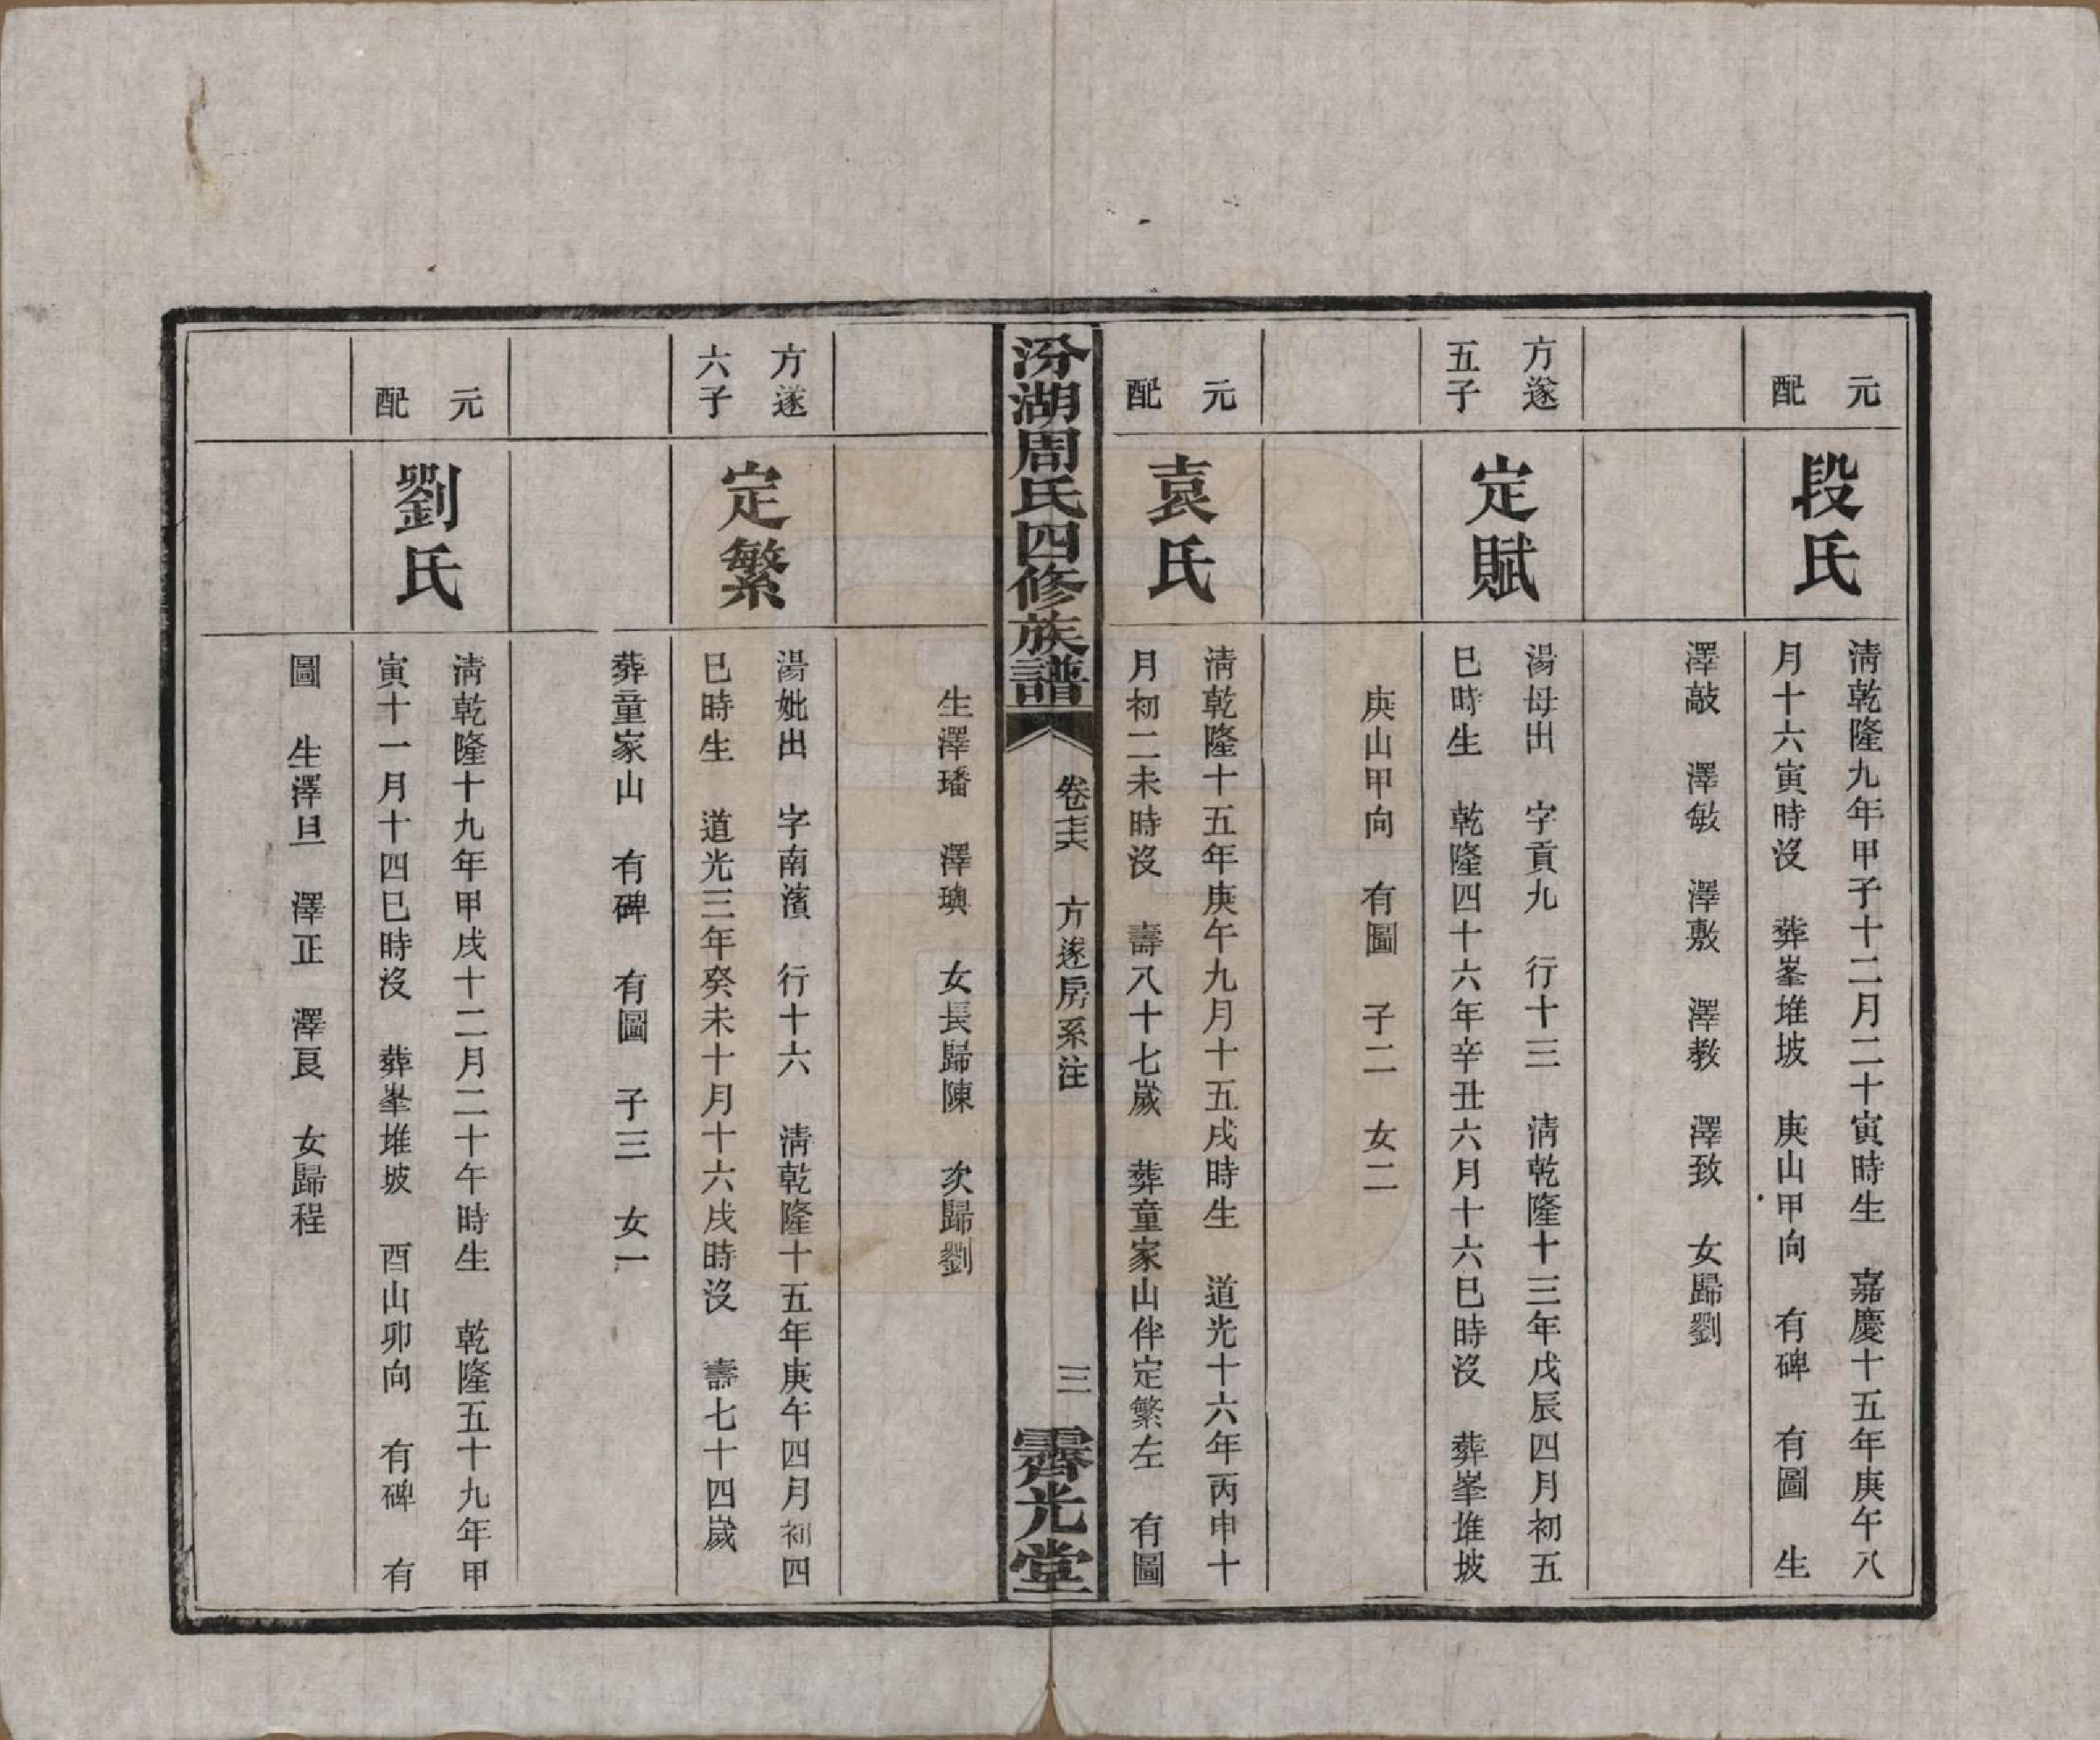 元
配
段氏
清乾隆九年甲子十二月二十寅時生　嘉慶十五年庚午八
月十六寅時沒　葬峯堆坡　庚山甲向　有碑　有圖　生
澤敲　澤敏　澤敷　澤教　澤致　女歸劉
方遂
五子
定賦
湯母出　字貢九　行十三　清乾隆十三年戊辰四月初五
巳時生　乾隆四十六年辛丑六月十六巳時沒　葬峯堆坡
庚山甲向　有圖　子二　女二
元
配
袁氏
清乾隆十五年庚午九月十五戌時生　道光十六年丙申十
月初二未時沒　壽八十七歲　葬童家山伴定繁左　有圖
汾湖周氏四修族譜
方遂房系注
三
霽光堂
生澤璠　澤璵　女長歸陳　次歸劉
方遂
六子
定繁
湯妣出　字南濱　行十六　清乾隆十五年庚午四月初四
巳時生　道光三年癸未十月十六戌時沒　壽七十四歲
葬童家山　有碑　有圖　子三　女一
元
配
劉氏
清乾隆十九年甲戌十二月二十午時生　乾隆五十九年甲
寅十一月十四巳時沒　葬峯堆坡　酉山卯向　有碑　有
圖　生澤旦　澤正　澤良　女歸程